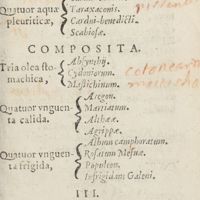 Quatuor aquæ
pleuriticæ,
Taraxaconis.
Cardui-benedicti.
Scabiosæ.
COMPOSITA.
Tria olea sto-
machica,
Absynthij.
Cydoniorum.
Mastichinum.
Quatuor vnguen-
ta calida.
Aregon.
Martiatum.
Althææ.
Agrippæ.
Quatuor vnguen-
ta frigida,
Album camphoratum.
Rosatum Mesuæ.
Populeon.
Infrigidans Galeni.
III.